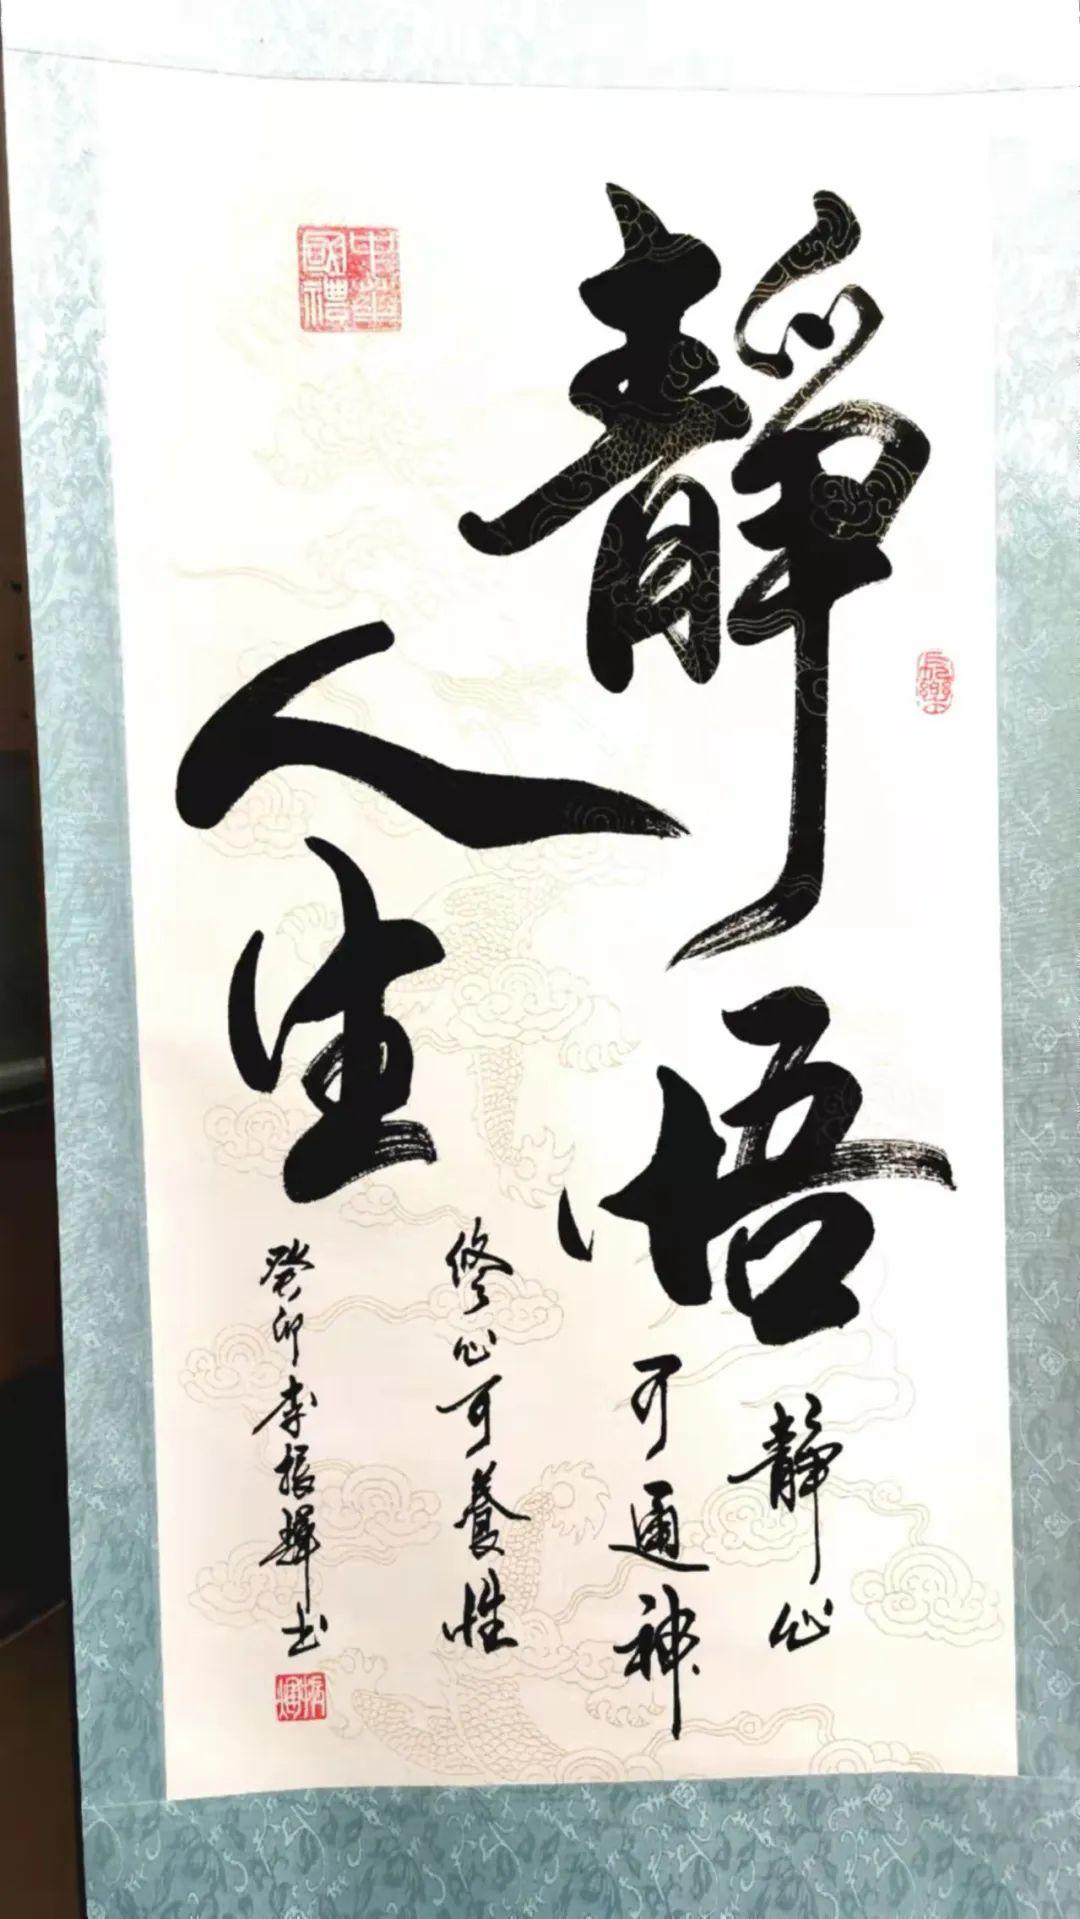 靜悟
人生
靜心
可通神
修心可養性
癸卯李振輝书
中華國禮
長樂
振輝